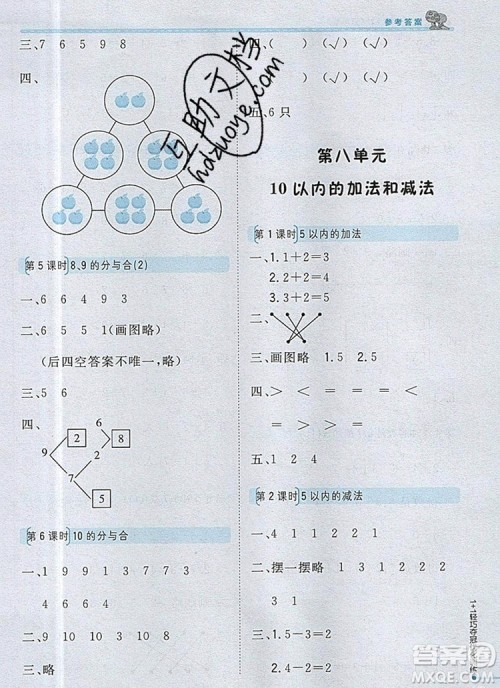 参考答案
三、7 6 5 9 8
四、
第5课时 8、9的分与合(2)
一、6 6 4 9 3
二、6 5 5 1(画图略)
(后四空答案不唯一,略)
三、5 6
四、
6 2
2 8
9 2
7
5
第6课时 10的分与合
一、1 9 9 1 3 7 7 3
4 6 6 4
二、9 4 7 8 10
三、略
四、( ) ( ) (√) (√)
( ) (√) (√)
五、6只
第八单元
10以内的加法和减法
第1课时 5以内的加法
一、1.1+2=3
2.3+2=5
二、
三、画图略 1.5 2.5
四、> < = >
< = = <
五、1 2 4
第2课时 5以内的减法
一、4 1 2 2 1
二、摆一摆略 1 1 1
三、1.5-1=4
2.4-2=2
1+1轻巧夺冠
互助文档
hdzuoye.com
答案圈
MXQE.COM